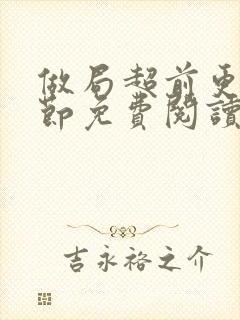 做局超前更
節免費閱讀
吉永裕之介